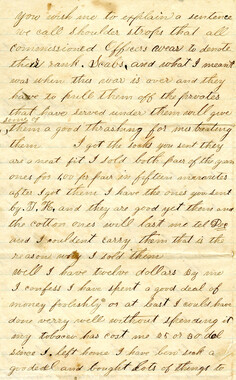 You wish me to explain a sentence
we call shoulder straps that all
commissioned Officers wear to denote
their rank. Scabs, and what I meant
was when this war is over and they
have to pull them off the privates
that have served under them will give
some of
them a good thrashing for mistreating
them I got the socks you sent they
are a neat fit I sold both pair of the yarn
ones for 400 pr pair in fifteen minutes
after I got them I have the ones you sent
by and they are good yet those and
the cotton ones will last me til
I couldent carry them that is the
reason why I sold them
well I have twelve dollars by me
I confess I have spent a good deal of
money foolishly or at least I could have
done verry well without spending it
my tobacco has cost me 25 or 30 dol
since I left home I have been sick a
good deal and bought lots of things to